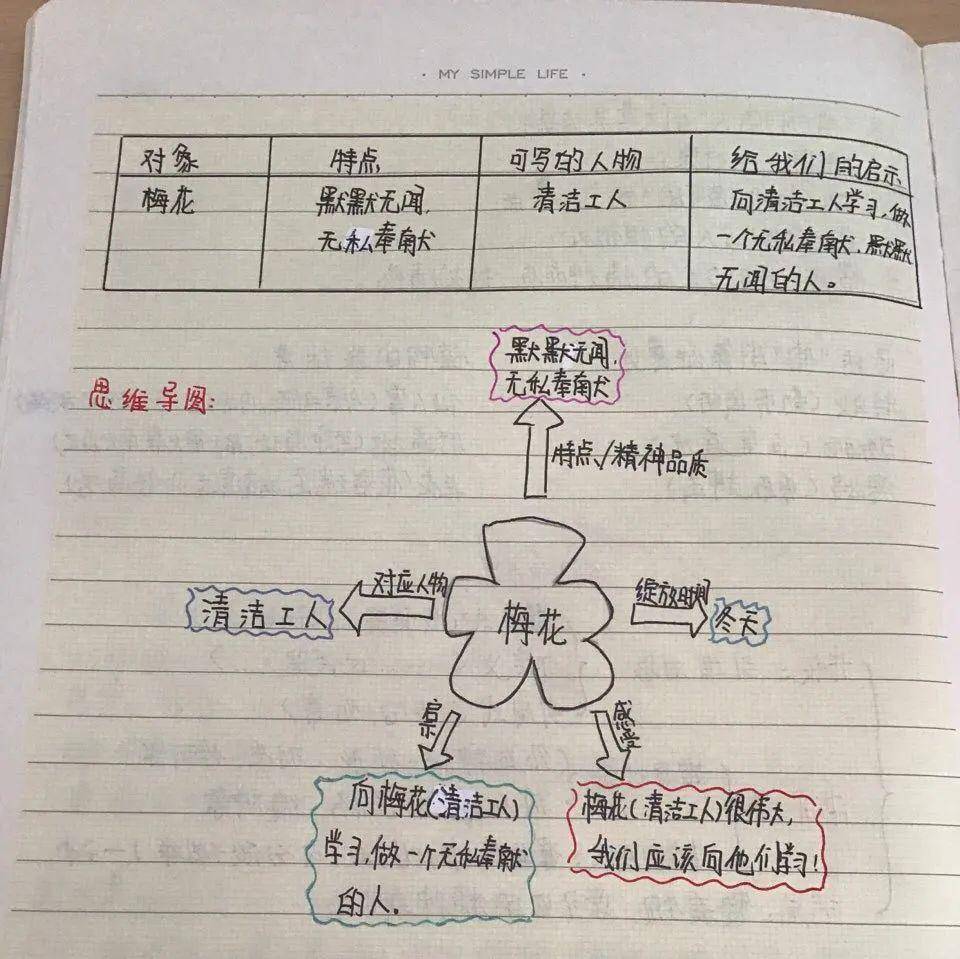 · MY SIMPLE LIFE ·
对象 特点 可写的人物 给我们的启示
梅花 默默无闻, 清洁工人 向清洁工人学习,做
无私奉献 一个无私奉献、默默
无闻的人。
默默无闻,
无私奉献
思维导图:
特点/精神品质
对应人物
绽放时间
清洁工人
梅花
冬天
启示
感受
向梅花(清洁工人)
学习,做一个无私奉献
的人.
梅花(清洁工人)很伟大,
我们应该向他们学习!